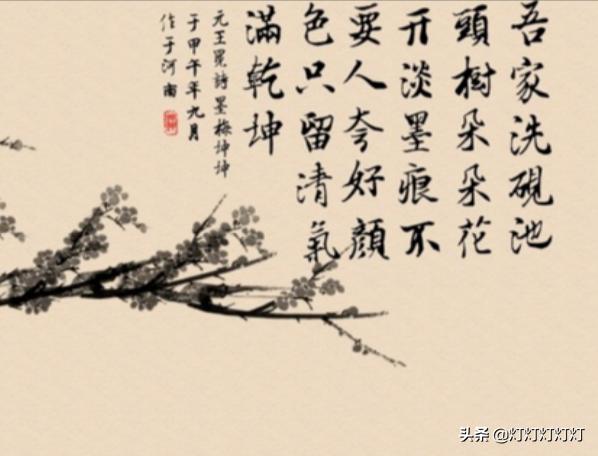 吾家洗硯池
頭樹朵朵花
开淡墨痕不
要人夸好顏
色只留清氣
滿乾坤
元王冕詩墨梅坤坤
于甲午年九月
作于河南
头条 @灯灯灯灯灯